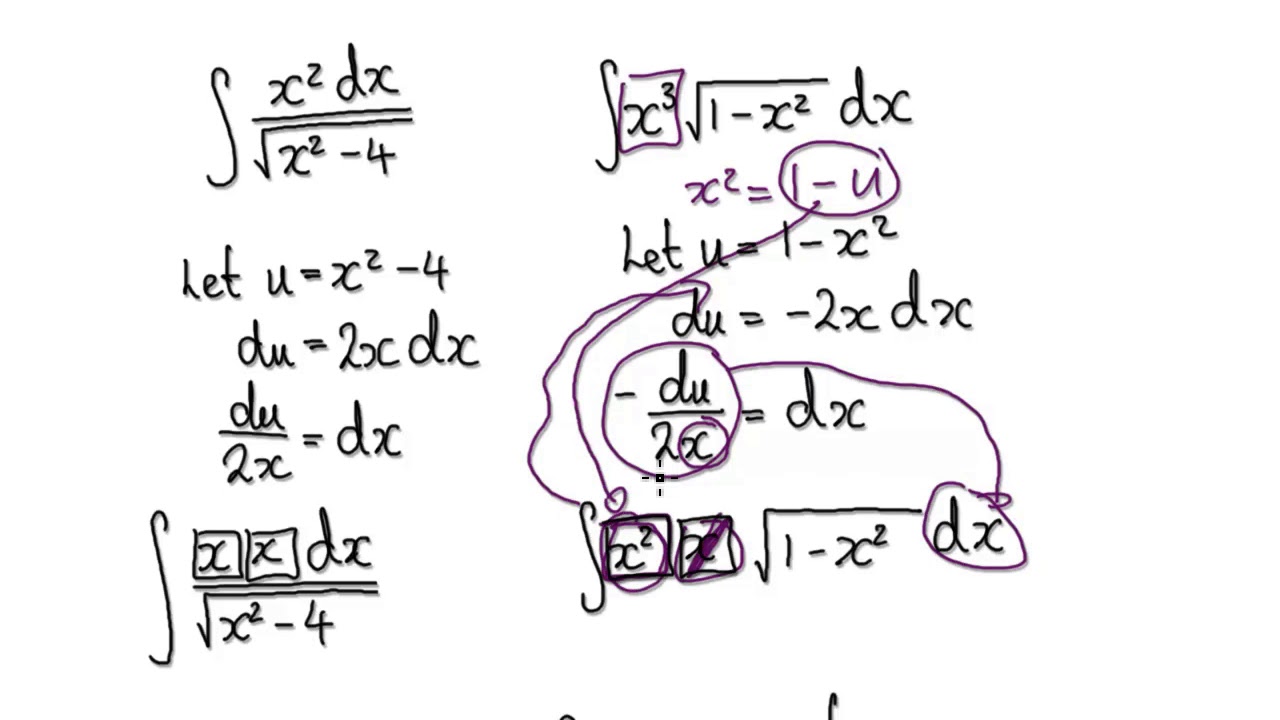 ∫ x² dx / √(x² − 4)
Let u = x² − 4
du = 2x dx
du / 2x = dx
∫ x x dx / √(x² − 4)
∫ x³ √(1 − x²) dx
x² = 1 − u
Let u = 1 − x²
du = −2x dx
− du / 2x = dx
∫ x² x √(1 − x²) dx